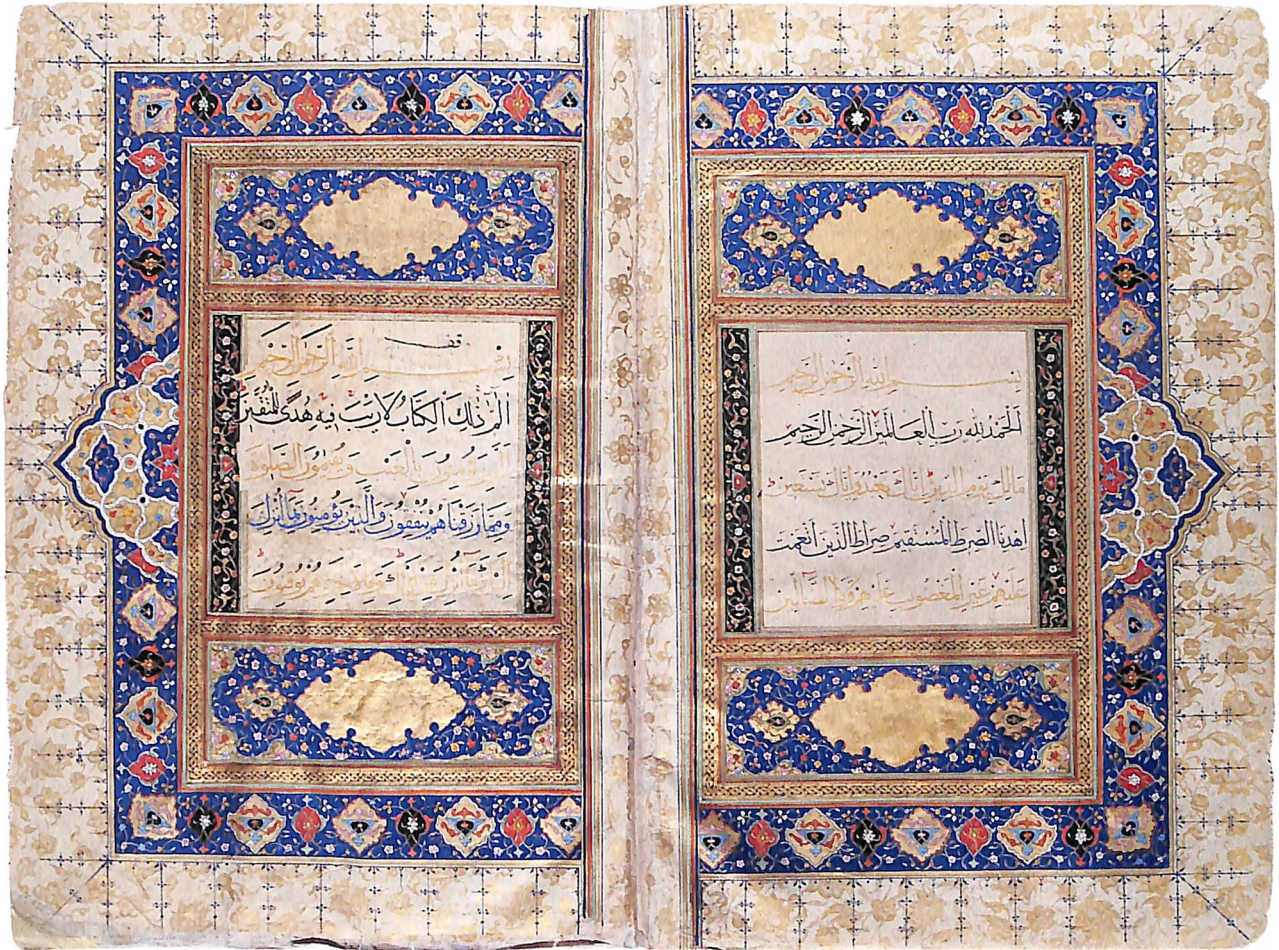 بسم الله الرحمن الرحيم
الحمد لله رب العالمين الرحمن الرحيم
مالك يوم الدين اياك نعبد واياك نستعين
اهدنا الصرط المستقيم صراط الذين انعمت
عليهم غير المغضوب عليهم ولا الضالين
وقف
بسم الله الرحمن الرحيم
الم ذلك الكتاب لا ريب فيه هدى للمتقين
الذين يؤمنون بالغيب ويقيمون الصلوة
ومما رزقناهم ينفقون والذين يؤمنون بما انزل